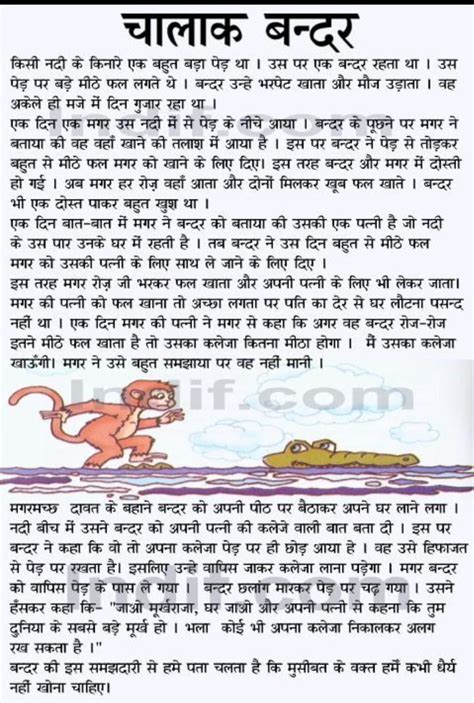 चालाक बन्दर
किसी नदी के किनारे एक बहुत बड़ा पेड़ था । उस पर एक बन्दर रहता था । उस
पेड़ पर बड़े मीठे फल लगते थे । बन्दर उन्हे भरपेट खाता और मौज उड़ाता । वह
अकेले ही मजे में दिन गुजार रहा था ।
एक दिन एक मगर उस नदी में से पेड़ के नीचे आया । बन्दर के पूछने पर मगर ने
बताया की वह वहाँ खाने की तलाश में आया है । इस पर बन्दर ने पेड़ से तोड़कर
बहुत से मीठे फल मगर को खाने के लिए दिए। इस तरह बन्दर और मगर में दोस्ती
हो गई । अब मगर हर रोज़ वहाँ आता और दोनों मिलकर खूब फल खाते । बन्दर
भी एक दोस्त पाकर बहुत खुश था ।
एक दिन बात-बात में मगर ने बन्दर को बताया की उसकी एक पत्नी है जो नदी
के उस पार उनके घर में रहती है । तब बन्दर ने उस दिन बहुत से मीठे फल
मगर को उसकी पत्नी के लिए साथ ले जाने के लिए दिए ।
इस तरह मगर रोज़ जी भरकर फल खाता और अपनी पत्नी के लिए भी लेकर जाता।
मगर की पत्नी को फल खाना तो अच्छा लगता पर पति का देर से घर लौटना पसन्द
नहीं था । एक दिन मगर की पत्नी ने मगर से कहा कि अगर वह बन्दर रोज-रोज
इतने मीठे फल खाता है तो उसका कलेजा कितना मीठा होगा । मैं उसका कलेजा
खाऊँगी। मगर ने उसे बहुत समझाया पर वह नहीं मानी ।
Indif.com
मगरमच्छ दावत के बहाने बन्दर को अपनी पीठ पर बैठाकर अपने घर लाने लगा ।
नदी बीच में उसने बन्दर को अपनी पत्नी की कलेजे वाली बात बता दी । इस पर
बन्दर ने कहा कि वो तो अपना कलेजा पेड़ पर ही छोड़ आया है । वह उसे हिफाजत
से पेड़ पर रखता है। इसलिए उन्हे वापिस जाकर कलेजा लाना पड़ेगा । मगर बन्दर
को वापिस पेड़ के पास ले गया । बन्दर छलांग मारकर पेड़ पर चढ़ गया । उसने
हँसकर कहा कि- "जाओ मूर्खराजा, घर जाओ और अपनी पत्नी से कहना कि तुम
दुनिया के सबसे बड़े मूर्ख हो । भला कोई भी अपना कलेजा निकालकर अलग
रख सकता है ।"
बन्दर की इस समझदारी से हमे पता चलता है कि मुसीबत के वक्त हमें कभी धैर्य
नहीं खोना चाहिए।